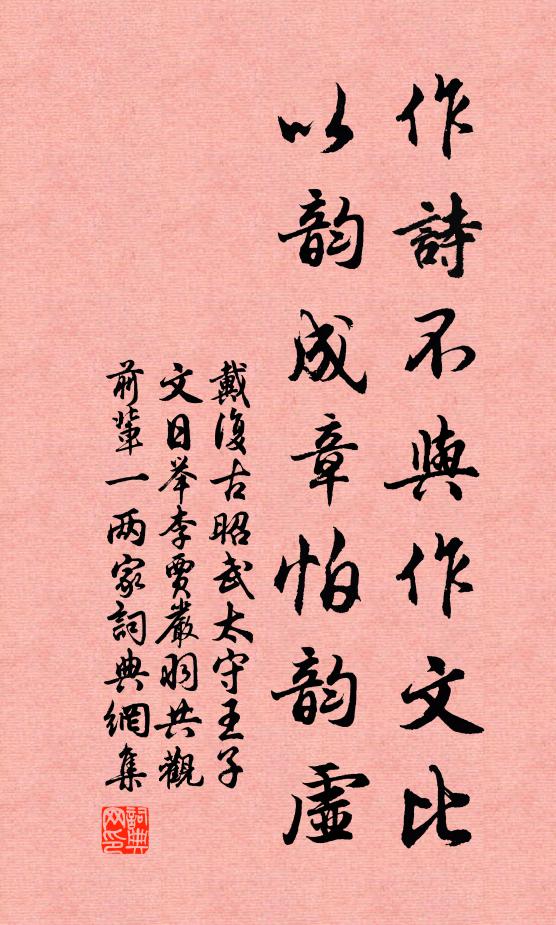 作詩不與作文比
以韵成章怕韵虚
戴復古昭武太守王子
文日举李賈嚴羽共觀
前輩一两家詞典網集
詞典网印